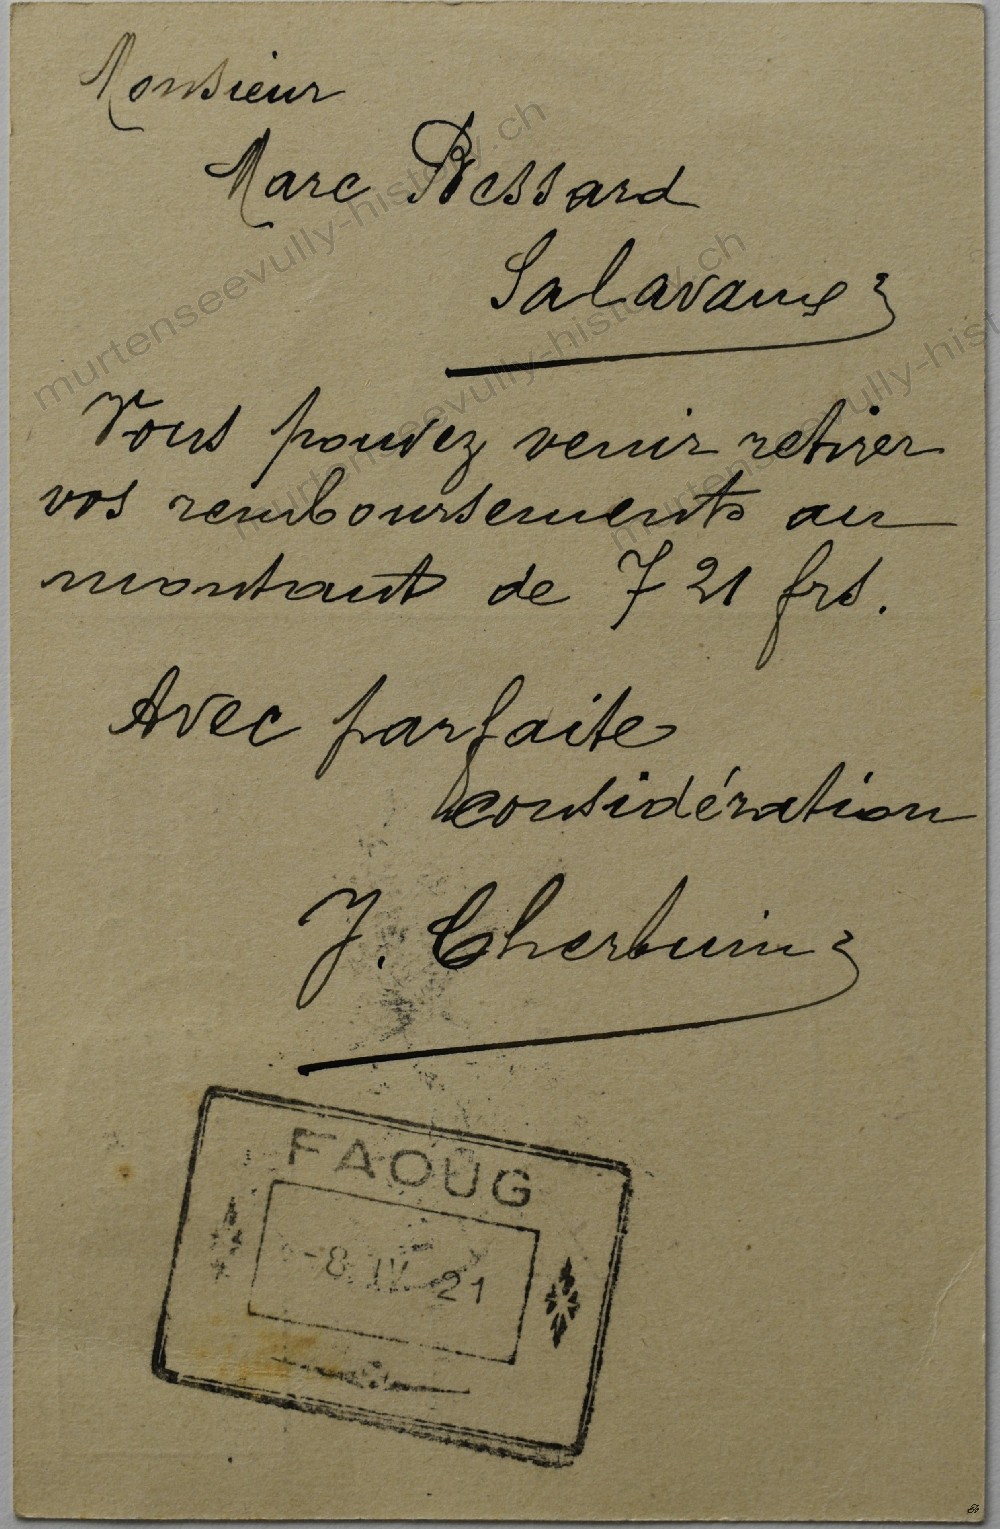 Monsieur
Marc Bessard
Salavaux
Vous pouvez venir retirer
vos remboursements au
montant de 721 frs.
Avec parfaite
considération
J. Cherbuin
FAOUG
-8. IV. 21
murtenseevully-history.ch
murtenseevully-history.ch
murtenseevully-hist